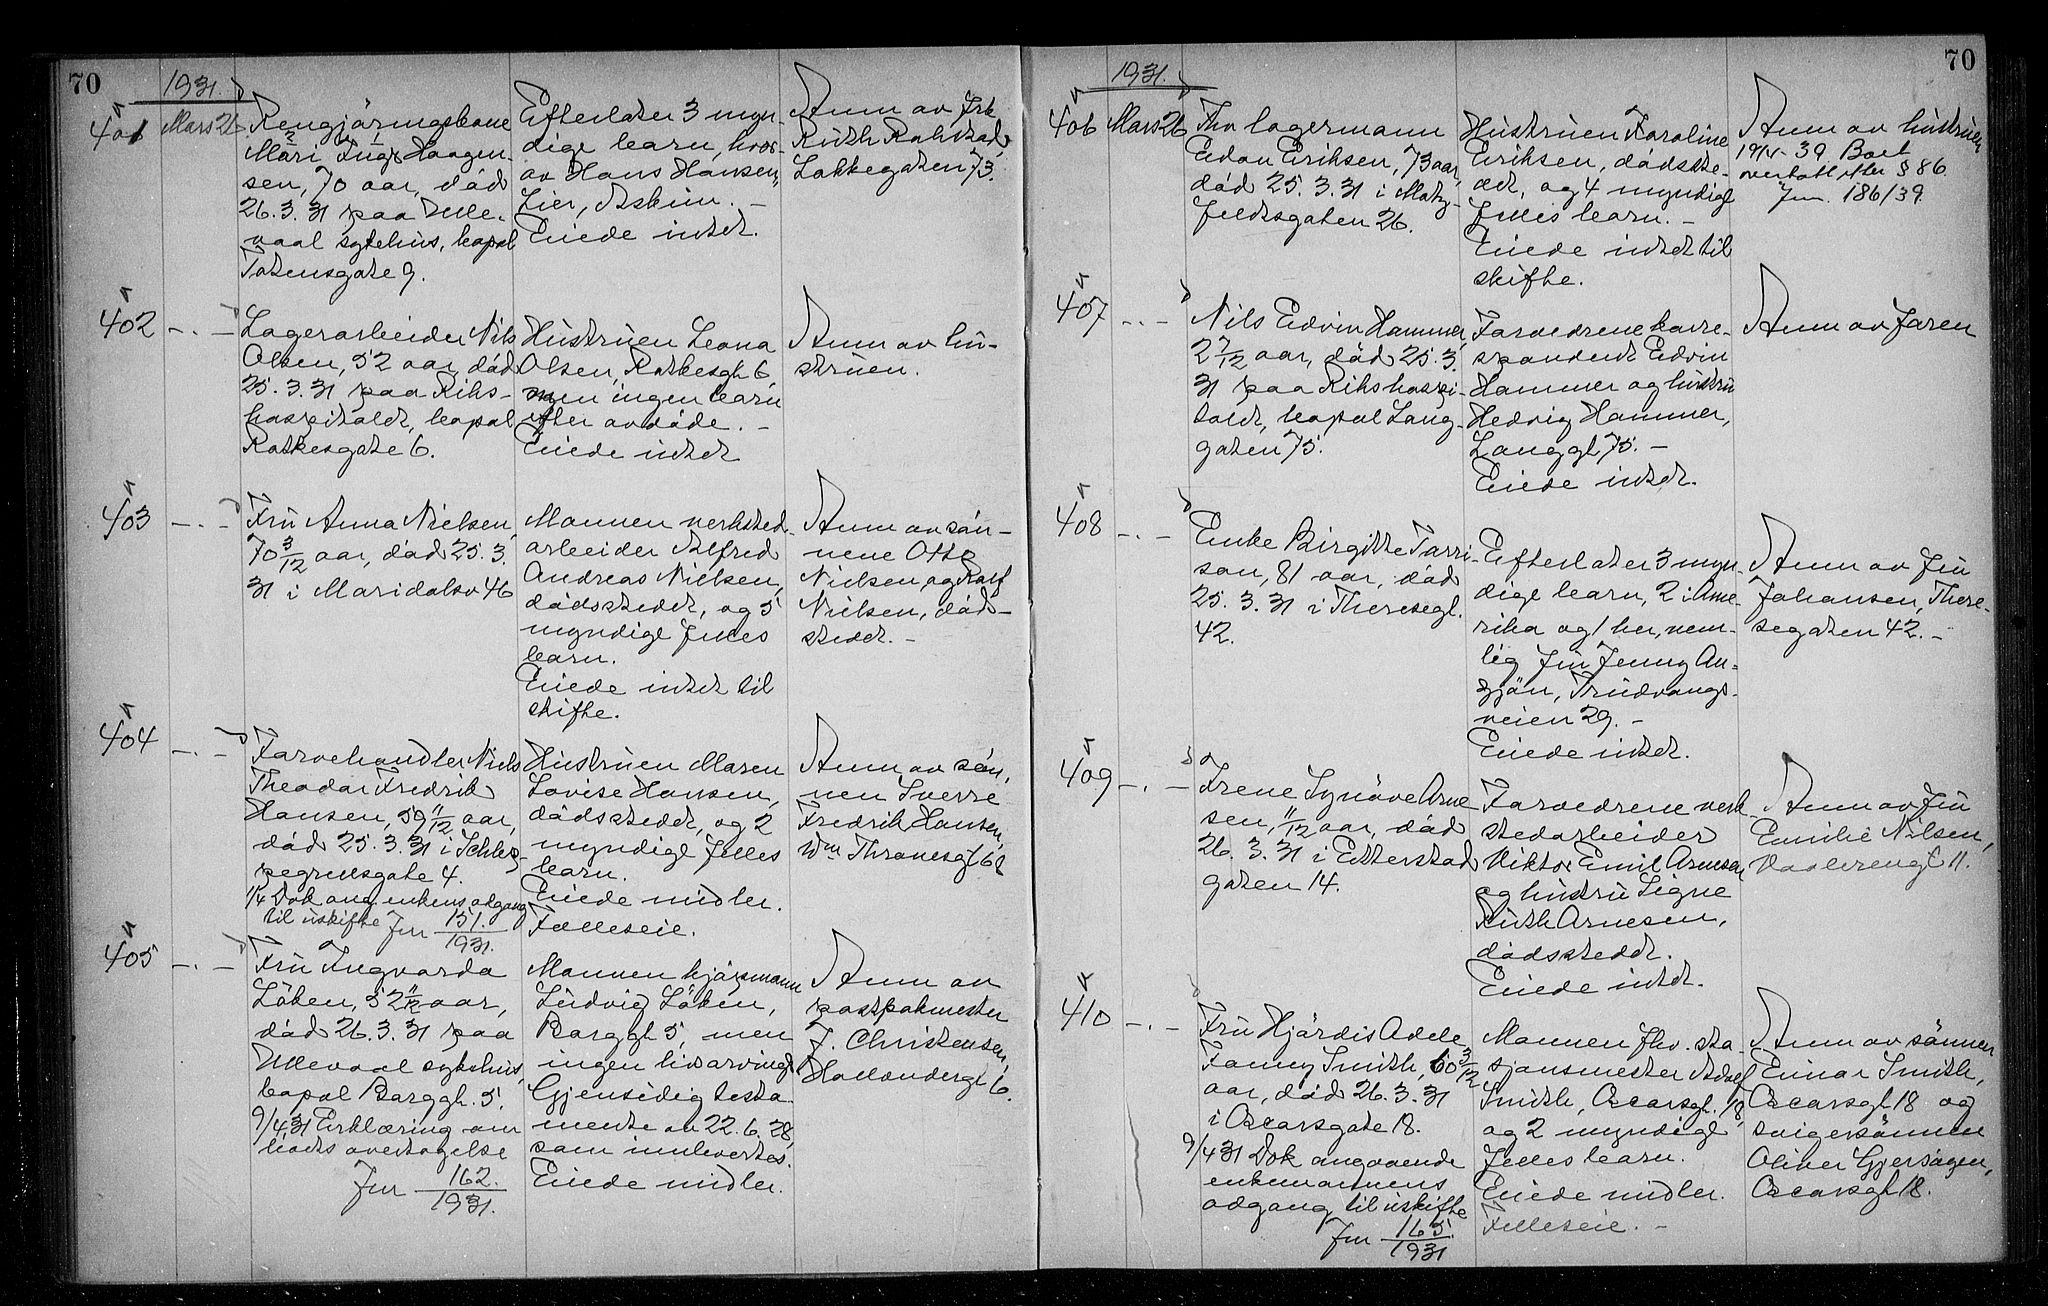 70
1931.
401 Mars 26 Rengjøringskone
Mari Inge Haagen-
sen, 70 aar, död
26.3.31 paa Ulle-
vaal sykehus, bopæl
Totensgate 9.
Efterlater 3 myn-
dige barn, hvor-
av Hans Hansen,
Lier, Askim. -
Eiede intet.
Anm av frk
Ruth Rolstad,
Lakkegaten 73.
402 -.- Lagerarbeider Nils
Olsen, 52 aar, död
25.3.31 paa Riks-
hospitalet, bopæl
Ratkesgate 6.
Hustruen Leona
Olsen, Ratkesgt 6,
men ingen barn
efter avdöde. -
Eiede intet
Anm av hu-
struen.
403 -.- Fru Anna Nielsen,
70 3/12 aar, död 25.3.
31 i Maridalsv 46
Mannen verksted-
arbeider Alfred
Andreas Nielsen,
dödsstedet, og 5
myndige felles
barn.
Eiede intet til
skifte.
Anm av søn-
nene Otto
Nielsen, og Rolf
Nielsen, död-
stedet. -
404 -.- Farvehandler Niels
Theodor Fredrik
Hansen, 59 11/12 aar,
död 25.3.31 i Schlep-
pegrellsgate 4.
1/4 Dok ang enkens adgang
til uskifte Jnr 151./1931.
Hustruen Maren
Lovise Hansen,
dödsstedet, og 2
myndige felles
barn.
Eiede midler.
Felleseie.
Anm av søn,
nen Sverre
Fredrik Hansen,
Wm Thranesgt 68
405 -.- Fru Ingvarda
Löken, 52 11/12 aar,
död 26.3.31 paa
Ullevaal sykehus,
bopæl Borggt. 5.
9/4 31 Erklæring om
boets overtagelse
Jnr 162./1931.
Mannen kjøpmann
Ludvig Löken,
Borggt 5, men
ingen livsarving.
Gjensidig testa-
mente av 22.6.28,
som innlevertes.
Eiede midler.
Anm av
postpakmester
J. Christensen,
Hollendergt 6.
70
1931.
406 Mars 26 Fhv lagermann
Edon Eriksen, 73 aar,
död 25.3.31 i Motz-
feldtsgaten 26.
Hustruen Karoline
Eriksen, dödsste-
det, og 4 myndige
felles barn. -
Eiede intet til
skifte.
Anm av hustruen
19/4-39 Boet
overtatt efter § 86.
Jnr. 186/39.
407 -.- Nils Edvin Hammer,
2 7/12 aar, död 25.3.
31 paa Rikshospi-
talet, bopæl Lang-
gaten 75.
Forældrene korre-
spondent Edvin
Hammer og hustru
Hedvig Hammer,
Langgt 75. -
Eiede intet.
Anm av faren
408 -.- Enke Birgitte Torri-
son, 81 aar, död
25.3.31 i Theresegt.
42.
Efterlater 3 myn-
dige barn, 2 i Ame-
rika og 1 her, nem-
lig fru Jenny An-
gjön, Trudvangs-
veien 29. -
Eiede intet.
Anm av fru
Johansen, There-
segaten 42. -
409 -.- Irene Synöve Arne
sen, 11/12 aar, död
26.3.31 i Etterstad
gaten 14.
Forældrene verk-
stedarbeider
Viktor Emil Arnesen
og hustru Signe
Ruth Arnesen,
dödsstedet.
Eiede intet.
Anm av fru
Emilie Nilsen,
Vaalerengt 11.
410 -.- Fru Hjördis Adele
Fanny Smith, 60 3/12
aar, död 26.3.31
i Oscarsgate 18.
9/4 31 Dok angaaende
enkemannens
adgang til uskifte
Jnr 165./1931
Mannen fhv. sta-
sjonsmester Adolf
Smith, Oscarsgt. 18,
og 2 myndige
felles barn.
Eiede midler.
Felleseie. -
Anm av sönnen
Einar Smith,
Oscarsgt 18 og
svigersönnen
Oliver Gjersøgen,
Oscarsgt 18.